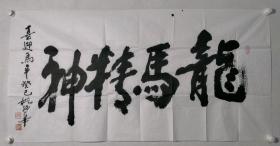 龍馬精神
喜迎馬年癸巳